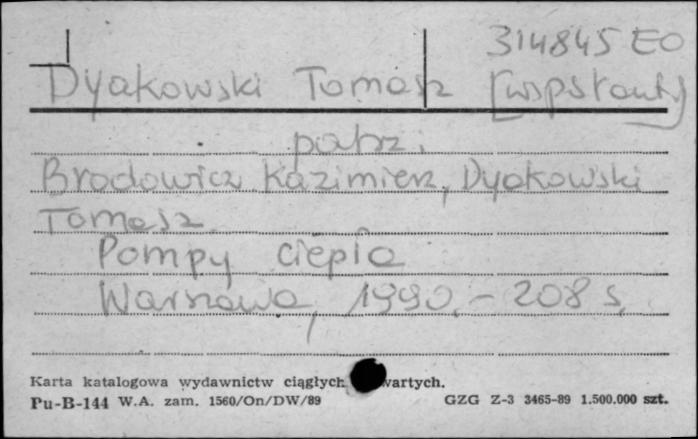 314845 EO
Dyakowski Tomasz [wspłauty]
patrz.
Brodowicz Kazimierz, Dyakowski
Tomasz
Pompy ciepła
Warszawa, 1990. - 208 s.
Karta katalogowa wydawnictw ciągłych wartych.
Pu-B-144 W.A. zam. 1560/On/DW/89 GZG Z-3 3465-89 1.500.000 szt.